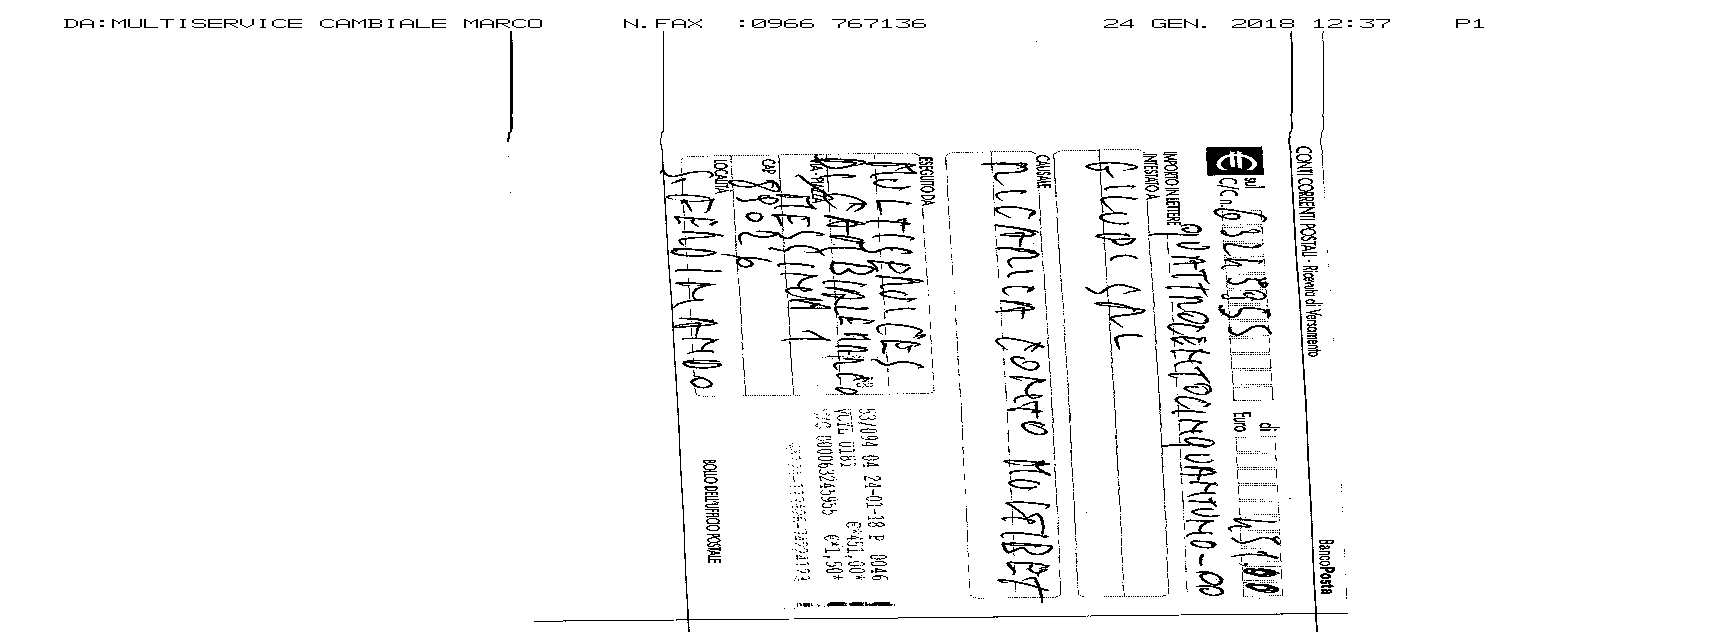 DA:MULTISERVICE CAMBIALE MARCO N.FAX :0966 767136 24 GEN. 2018 12:37 P1
CONTI CORRENTI POSTALI - Ricevuta di Versamento BancoPosta
sul C/C n. 63245955 di Euro 451,00
IMPORTO IN LETTERE QUATTROCENTOCINQUANTUNO-00
INTESTATO A
CAUSALE
RICARICA CONTO
ESEGUITO DA
DI CAMBIALE MARCO
VIA - PIAZZA MESSINA 1
CAP
LOCALITÀ
S. FERDINANDO
53/094 04 24-01-18 P 0046
VCYL 0181 €*451,00*
C/C 000063245955 €*1,50*
BOLLO DELL'UFFICIO POSTALE